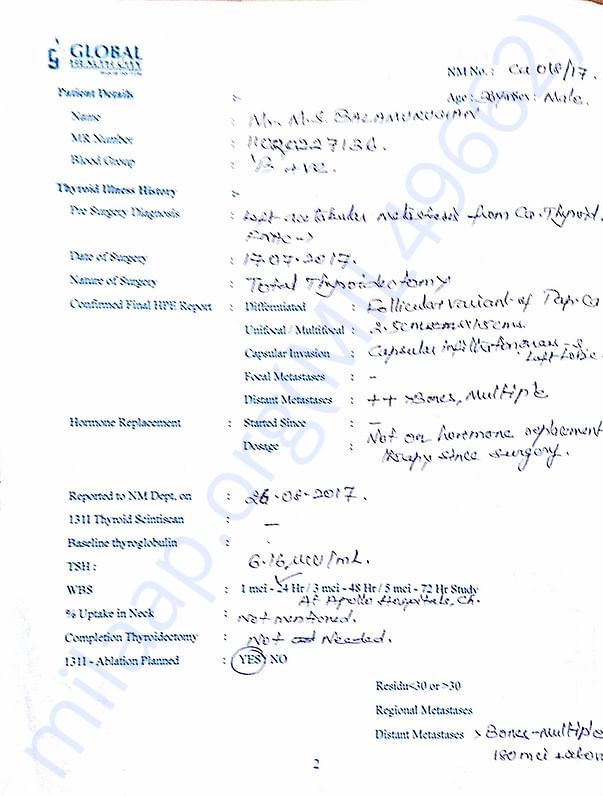 GLOBAL
HEALTH CITY
NM No. : Ca 018/17.
Patient Details :-
Age : /Sex : Male.
Name : Mr. M.S. BALAMURUGAN
MR Number :
Blood Group : 'B' +ve.
Thyroid Illness History :-
Pre Surgery Diagnosis : Left acetabular metastases from Ca. Thyroid.
Date of Surgery : 17.07.2017.
Nature of Surgery : Total Thyroidectomy
Confirmed Final HPE Report : Differentiated : Follicular variant of Pap. Ca
Unifocal / Multifocal :
Capsular Invasion : Capsular
Left Lobe
Focal Metastases : -
Distant Metastases : ++ Bones, Multiple
Hormone Replacement : Started Since : -
Dosage : Not on hormone replacement
therapy since surgery.
Reported to NM Dept. on : 26.08.2017.
131I Thyroid Scintiscan : -
Baseline thyroglobulin : .
TSH : 6.16 /mL.
WBS : 1 mci - 24 Hr / 3 mci - 48 Hr / 5 mci - 72 Hr Study
At Apollo Hospitals, Ch.
% Uptake in Neck : Not mentioned.
Completion Thyroidectomy : Not Needed.
131I - Ablation Planned : YES / NO
Residu<30 or >30
Regional Metastases
Distant Metastases > Bones - Multiple
180 mci
2
milaap.org(MIL 49662)